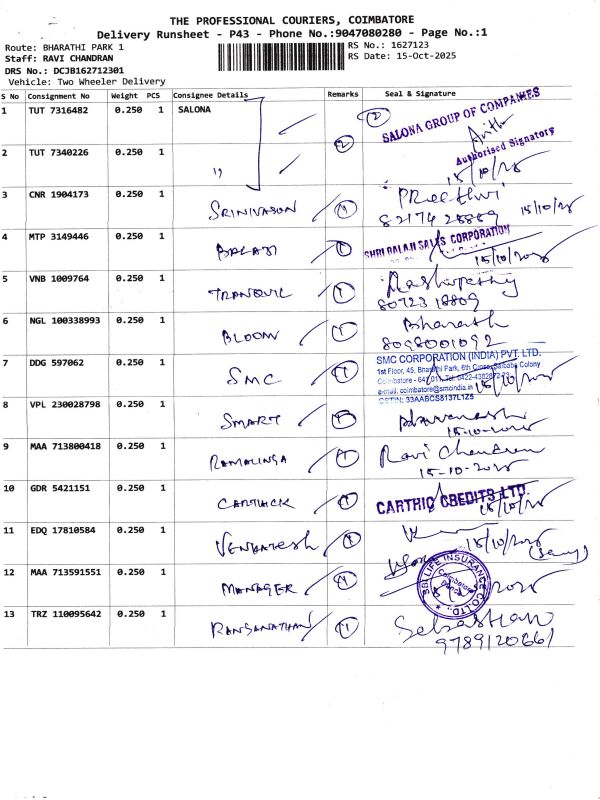 THE PROFESSIONAL COURIERS, COIMBATORE
Delivery Runsheet - P43 - Phone No.:9047080280 - Page No.:1
Route: BHARATHI PARK 1
RS No.: 1627123
Staff: RAVI CHANDRAN
RS Date: 15-Oct-2025
DRS No.: DCJB162712301
Vehicle: Two Wheeler Delivery
S No Consignment No Weight PCS Consignee Details Remarks Seal & Signature
1 TUT 7316482 0.250 1 SALONA 2 SALONA GROUP OF COMPANIES
Authorised Signatory
2 TUT 7340226 0.250 1 " 2 15/10/25
3 CNR 1904173 0.250 1 SRINIVASON 1 PReethvi 15/10/25
82174 28889
4 MTP 3149446 0.250 1 BALAJI 1 SHRI BALAJI SALES CORPORATION
15/10/25
5 VNB 1009764 0.250 1 TRANQUIL 1
80723 18809
6 NGL 100338993 0.250 1 BLOOM 1 Bharath
8098001092
7 DDG 597062 0.250 1 SMC 1 SMC CORPORATION (INDIA) PVT. LTD.
1st Floor, 45, Bharathi Park, 6th Cross, Saibaba Colony
Coimbatore - 641 011, Tel: 0422-4382872-73
e-mail: coimbatore@smcindia.in 15/10/2025
GSTIN: 33AABCS8137L1Z5
8 VPL 230028798 0.250 1 SMART 1
15-10-2025
9 MAA 713800418 0.250 1 RAMALINGA 1 Ravi Chandran
15-10-2025
10 GDR 5421151 0.250 1 CARTHICK 1 CARTHIC CREDITS LTD.
15/10/25
11 EDQ 17810584 0.250 1 VENKATESH 1 15/10/25
12 MAA 713591551 0.250 1 MANAGER 1 SBI LIFE INSURANCE CO. LTD. Coimbatore 2025
13 TRZ 110095642 0.250 1 RANGANATHAN 1 Sebastian
9789120661